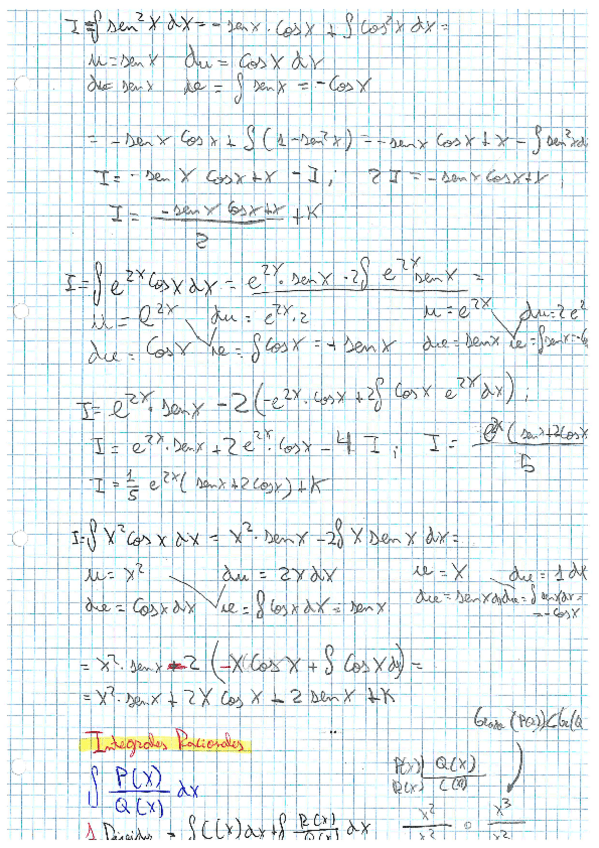 I = ∫ sen²x dx = - senx · cosx + ∫ cos²x dx =
u = senx   du = cosx dx
dv = senx   v = ∫ senx = - cosx
= - senx cosx + ∫ (1 - sen²x) = - senx cosx + x - ∫ sen²x d
I = - senx cosx + x - I ;   2I = - senx cosx + x
I = (- senx cosx + x)/2 + K
I = ∫ e^2x cosx dx = e^2x · senx - 2∫ e^2x senx =
u = e^2x   du = e^2x · 2   u = e^2x   du = 2e^2
dv = cosx   v = ∫ cosx = + senx   dv = senx   v = ∫ senx = - co
I = e^2x · senx - 2 (- e^2x · cosx + 2∫ cosx e^2x dx) ;
I = e^2x · senx + 2e^2x · cosx - 4 I ;   I = e^2x (senx + 2cosx /5
I = 1/5 e^2x (senx + 2cosx) + K
I = ∫ x² cosx dx = x² · senx - 2∫ x senx dx =
u = x²   du = 2x dx   u = x   du = 1 dx
dv = cosx dx   v = ∫ cosx dx = senx   dv = senx dx   v = ∫ senx dx =
= - cosx
= x² · senx - 2 (- x cosx + ∫ cosx dx) =
= x² · senx + 2x cosx - 2 senx + K
Grado (P(x)) < Gr(Q
Integrales Racionales
∫ P(x)/Q(x) dx
P(x) | Q(x)
R(x)   C(x)
= ∫ C(x) dx + ∫ R(x)/Q(x) dx   x²/x²   o   x³/x²